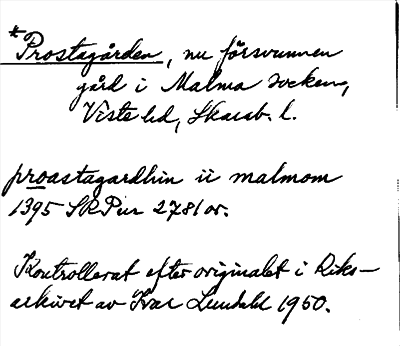 *Prostagården, nu försvunnen
gård i Malma socken,
Viste hd, Skarab. l.
proastagardhin ii malmom
1395 SRPer 2781 or.
Kontrollerat efter originalet i Riks-
arkivet av Ivar Lundahl 1950.